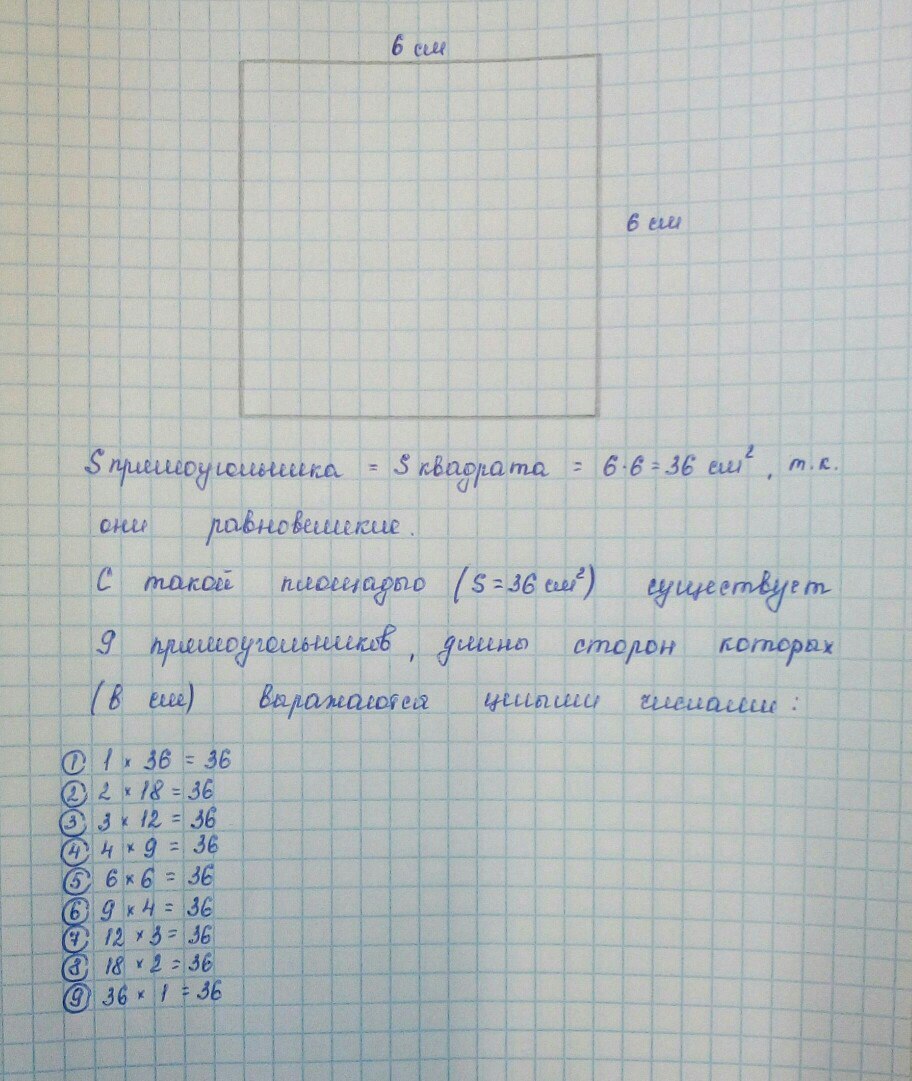 6 см
6 см
S прямоугольника = S квадрата = 6·6 = 36 см², т.к.
они равновеликие.
С такой площадью (S = 36 см²) существует
9 прямоугольников, длины сторон которых
(в см) выражаются целыми числами:
① 1 × 36 = 36
② 2 × 18 = 36
③ 3 × 12 = 36
④ 4 × 9 = 36
⑤ 6 × 6 = 36
⑥ 9 × 4 = 36
⑦ 12 × 3 = 36
⑧ 18 × 2 = 36
⑨ 36 × 1 = 36